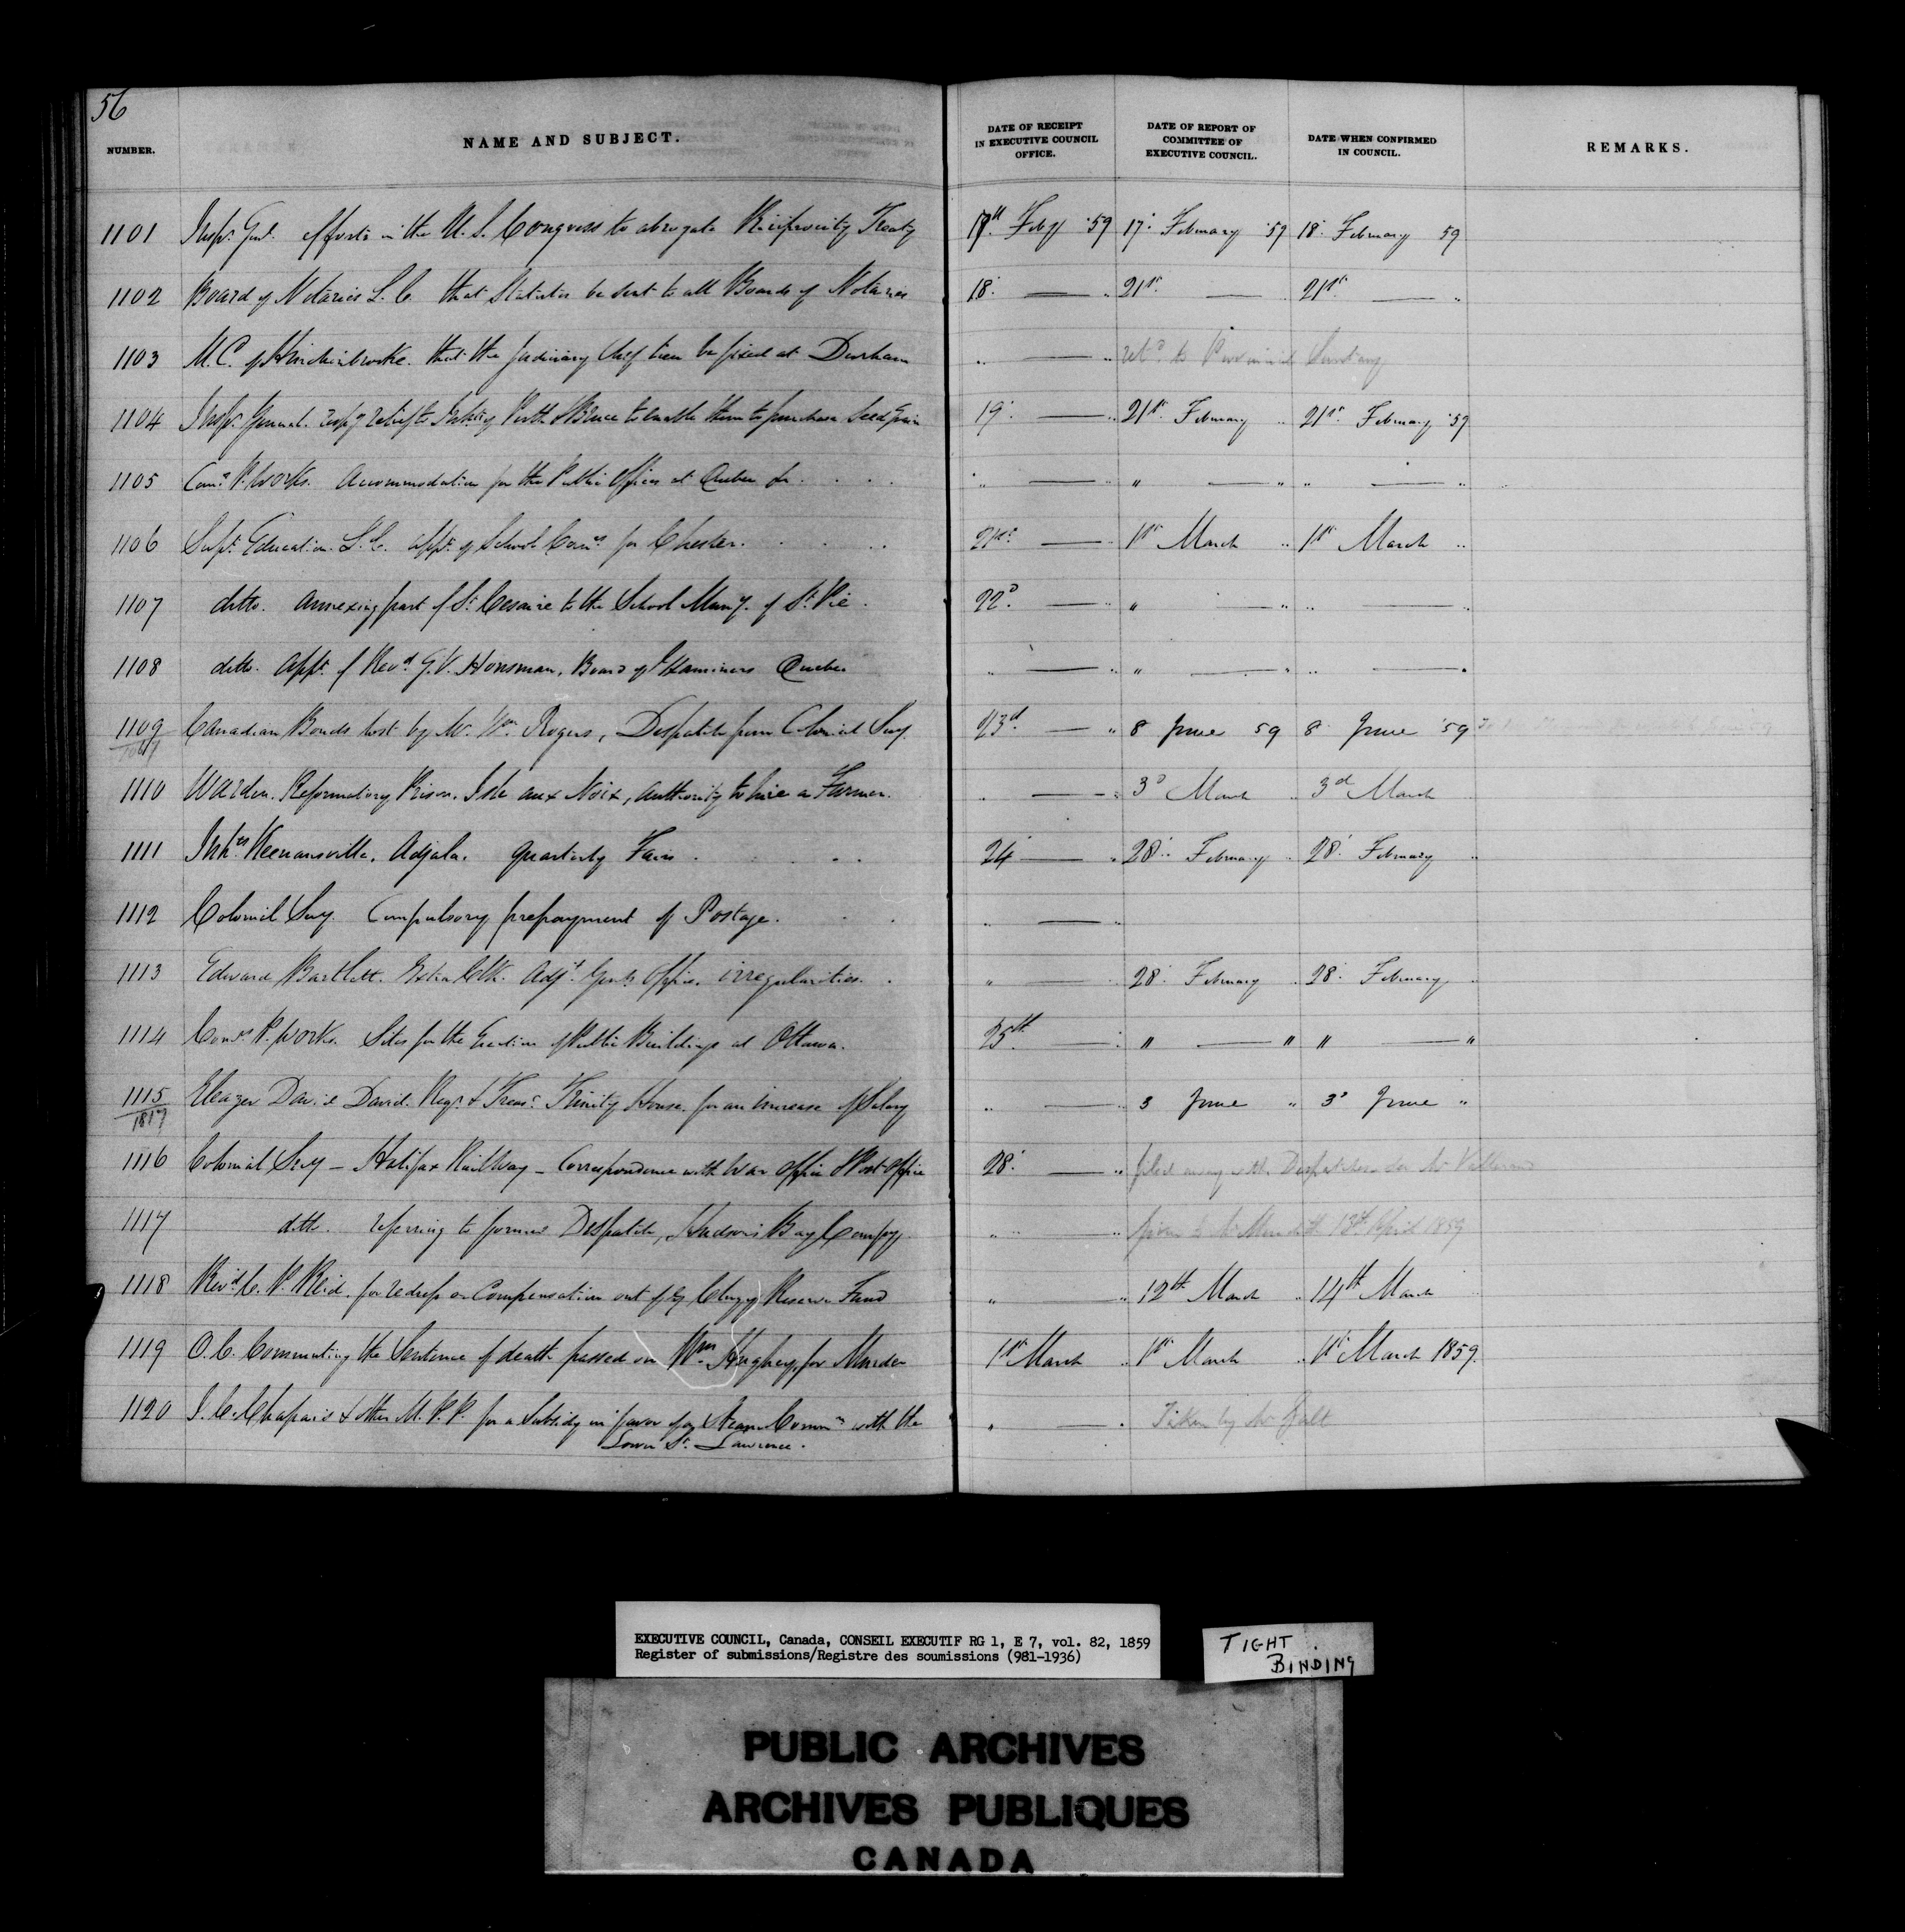 56
NUMBER. NAME AND SUBJECT. DATE OF RECEIPT IN EXECUTIVE COUNCIL OFFICE. DATE OF REPORT OF COMMITTEE OF EXECUTIVE COUNCIL. DATE WHEN CONFIRMED IN COUNCIL. REMARKS.
1101 Insp. Genl. efforts in the U. S. Congress to abrogate Reciprocity Treaty 17th Feby '59 17. February '59 18. February 59
1102 Board of Notaries L. C. that Statutes be sent to all Boards of Notaries 18. — " 21st — 21st — "
1103 M. C. of Hinchinbrooke. that the Judiciary Chef lieu be fixed at Durham " — " retd to Provincial Secretary
1104 Insp. General. respg relief to Inhts of Perth & Bruce to enable them to purchase Seed Grain 19. — " 21st February " 21st February '59
1105 Comrs P. Works. Accommodation for the Public Offices at Quebec &c. " — " " — " " — "
1106 Supt Education. L. C. appt of School Comrs for Chester. 21st — " 1st March " 1st March "
1107 ditto. annexing part of St Cesaire to the School Muny. of St Pie. 22d — " " — " " — "
1108 ditto. appt of Revd G. V. Housman, Board of Examiners Quebec " — " " — " " — "
1109 Canadian Bonds lost by Mr. Wm Rogers, Despatch from Colonial Secy. 23d — " 8 June 59 8 June 59
1110 Warden. Reformatory Prison. Isle aux Noix, authority to hire a Farmer. " — " 3d March " 3d March
1111 Inhts Keenansville, Adjala. Quarterly Fairs 24 — " 28. February " 28. February "
1112 Colonial Secy. Compulsory prepayment of Postage. " —
1113 Edward Bartlett. Extra Clk. Adjt Genls Office. irregularities. " — " 28. February " 28. February "
1114 Comrs P. Works. Sites for the Erection of Public Buildings at Ottawa. 25th — " " — " " — "
1115 Eleazer David David. Regr & Treasr Trinity House. for an increase of Salary " — " 3 June " 3d June "
1817
1116 Colonial Secy — Halifax Railway — Correspondence with War Office & Post Office 28. — " filed away with Despatches
1117 ditto. referring to former Despatch, Hudson's Bay Compy. " " given to Mr Meredith 18th April 1859
1118 Revd C. P. Reid. for redress or Compensation out of ye Clergy Reserve Fund " — " 12th March " 14th March
1119 O. C. Commuting the Sentence of death passed on Wm Hughey, for Murder 1st March " 1st March " 1st March 1859.
1120 J. C. Chapais & other M. P. P. for a Subsidy in favor of ye Steam Commn with the
Lower St Lawrence. " — " Taken by Mr Galt
EXECUTIVE COUNCIL, Canada, CONSEIL EXECUTIF RG 1, E 7, vol. 82, 1859
Register of submissions/Registre des soumissions (981-1936)
TIGHT
BINDING
PUBLIC ARCHIVES
ARCHIVES PUBLIQUES
CANADA